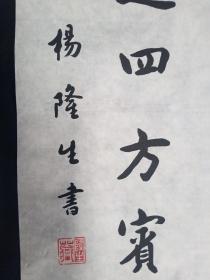 迎四方賓
楊隆生書